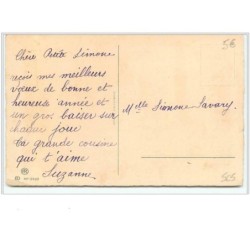 Chère Petite Simone
reçois mes meilleurs
vœux de bonne et
heureuse année et
un gros baiser sur
chaque joue
ta grande cousine
qui t'aime
Suzanne.
Mlle Simone Savary